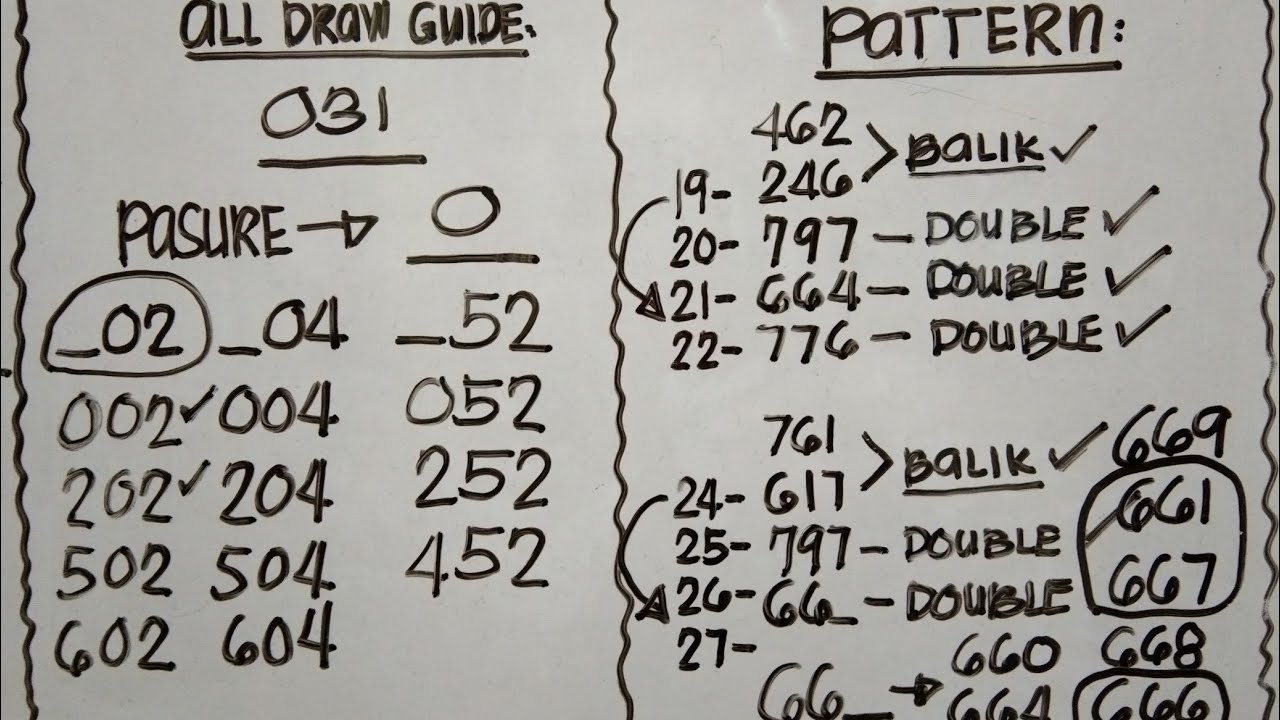 ALL DRAW GUIDE.
031
PASURE → 0
_02 _04 _52
002✓ 004 052
202✓ 204 252
502 504 452
602 604
PATTERN:
462
19- 246 > BALIK ✓
20- 797 - DOUBLE ✓
21- 664 - DOUBLE ✓
22- 776 - DOUBLE ✓
761
24- 617 > BALIK ✓
25- 797 - DOUBLE
26- 66_ - DOUBLE
27-
669
661
667
66_ → 660 668
664 666